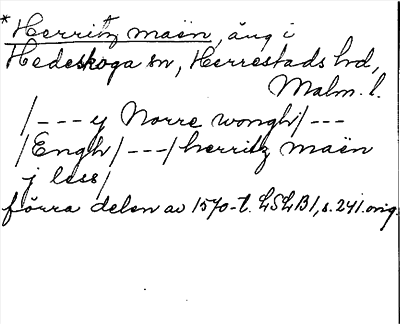 *Herritz maën, äng i
Hedeskoga sn, Herrestads hd,
Malm. l.
/--- y Norre wongh/---
/Engh/---/herritz maën
j less/
förra delen av 1570-t. LSLB1, s. 241. orig.